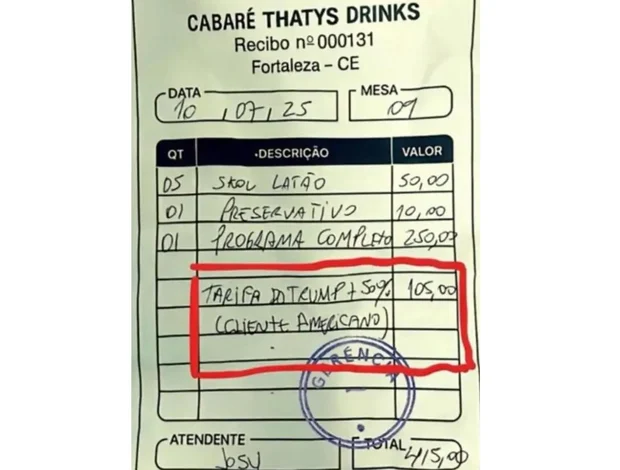 CABARÉ THATYS DRINKS
Recibo nº 000131
Fortaleza – CE
DATA MESA
10 , 07 , 25 09
QT DESCRIÇÃO VALOR
05 SKOL LATÃO 50,00
01 PRESERVATIVO 10,00
01 PROGRAMA COMPLETO 250,00
TARIFA DO TRUMP + 50% 105,00
(CLIENTE AMERICANO)
GERÊNCIA
ATENDENTE TOTAL
JOSY 415,00